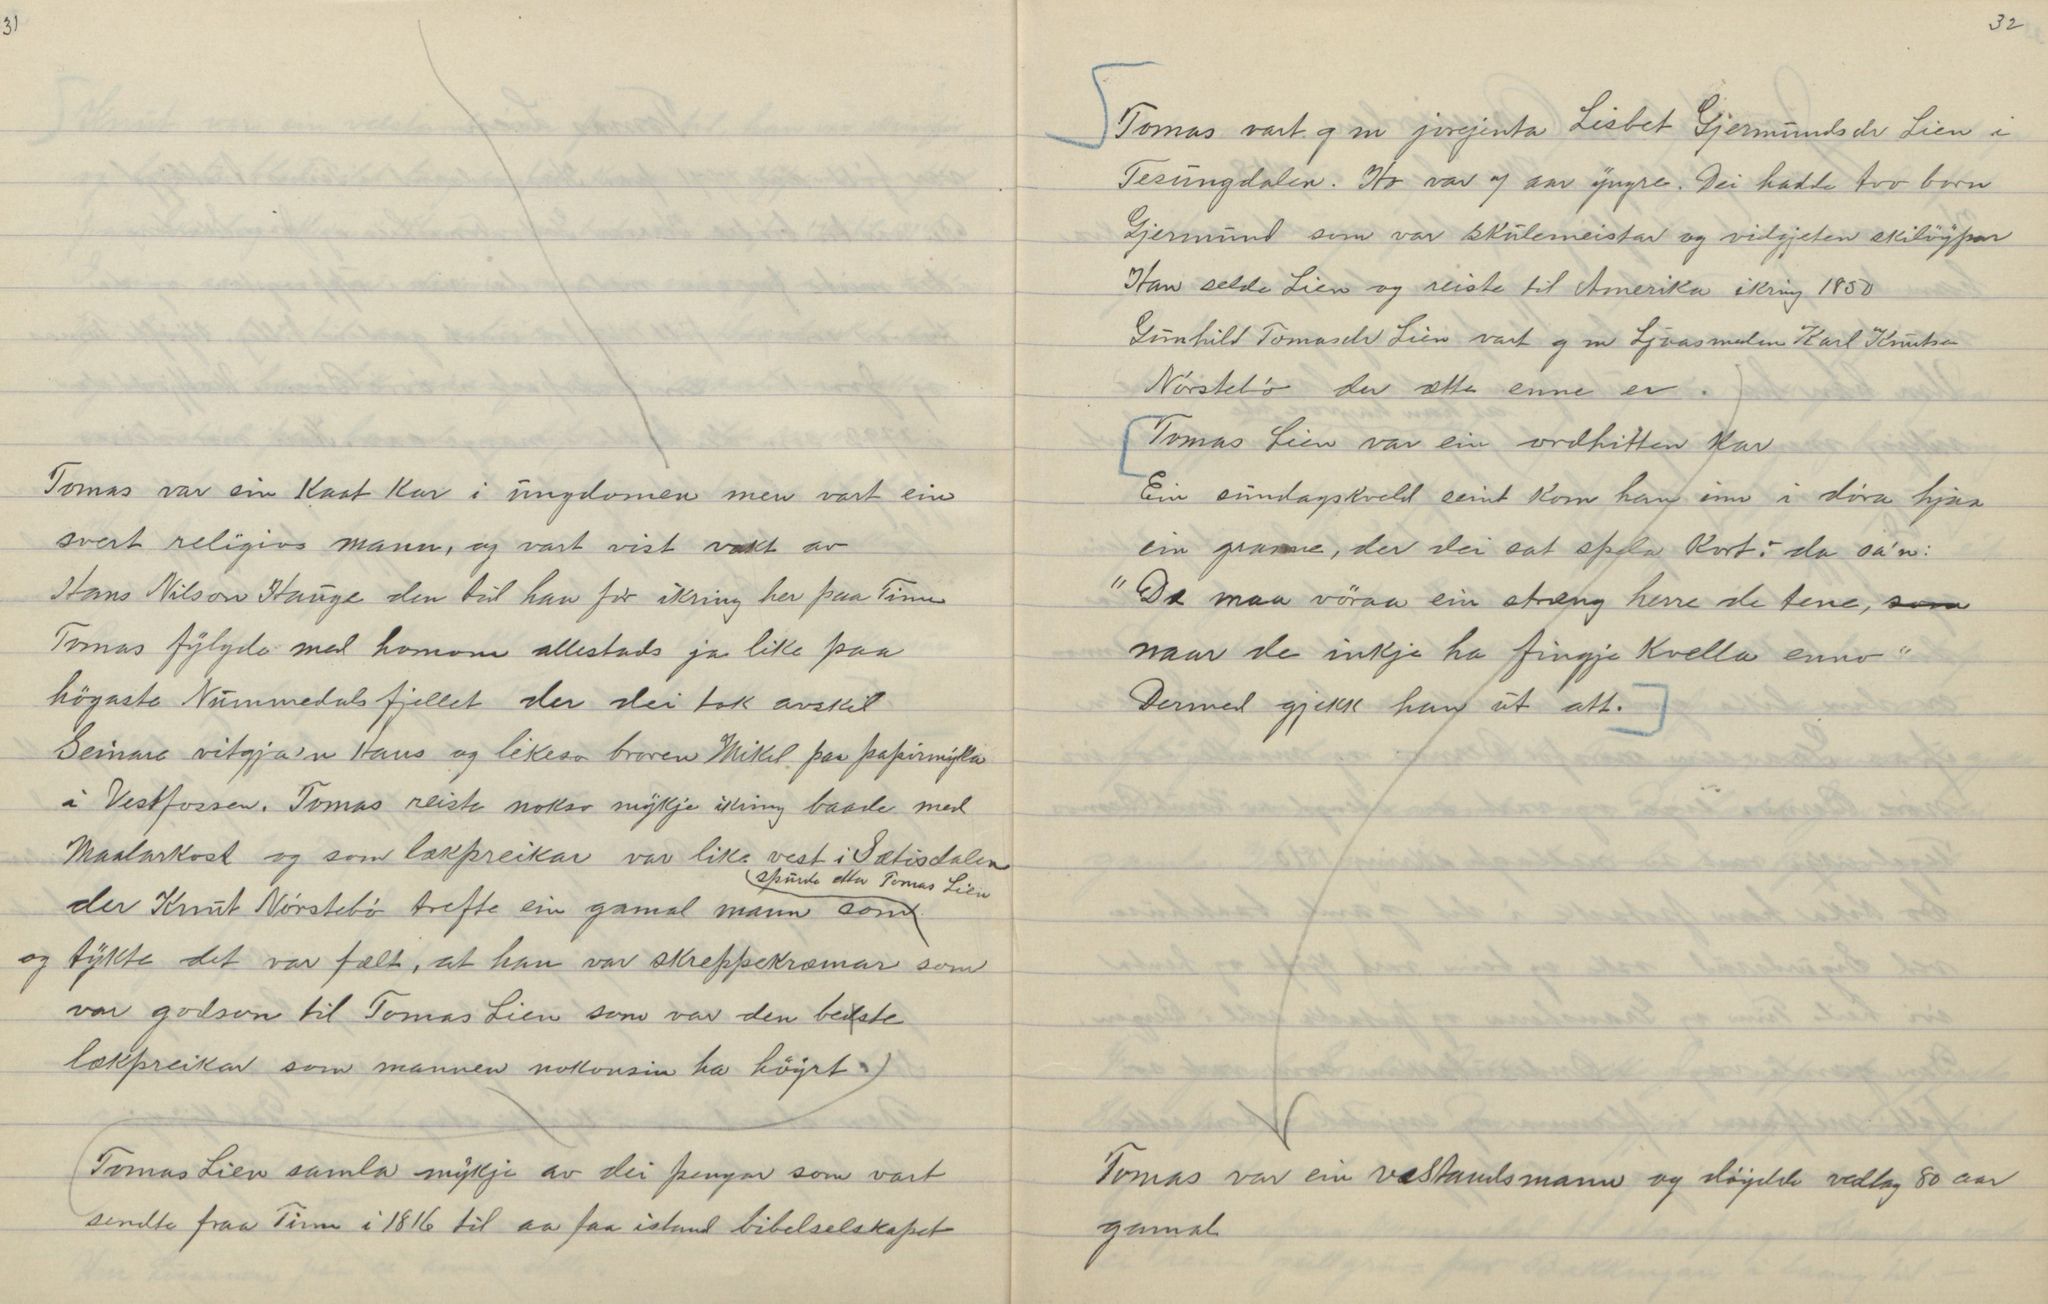 31
Tomas var ein kaat kar i ungdomen men vart ein
svert religiøs mann, og vart vist vakt av
Hans Nilson Hauge den tid han for ikring her paa Tinn
Tomas fylgde med honom allestads ja like paa
högaste Nummedalsfjellet der dei tok avskil
Seinare vitgja'n Hans og likeso broren Mikel paa papirmylla
i Vestfossen. Tomas reiste nokso mykje ikring baade med
Maalarkost og som lækpreikar var like vest i Sætisdalen
spurde etter Tomas Lien
der Knut Nørstebø trefte ein gamal mann som
og tykte det var fælt, at han var skreppekræmar som
var godson til Tomas Lien som var den beste
lækpreikar som mannen nokonsin ha höyrt.)
Tomas Lien samla mykje av dei pengar som vart
sendte fraa Tinn i 1816 til aa faa istand bibelselskapet
32
Tomas vart g m jorejenta Lisbet Gjermundsdr Lien i
Tesungdalen. Ho var 7 aar yngre. Dei hadde tvo born
Gjermund som var skulemeistar og vidgjeten skilöypar
Han selde Lien og reiste til Amerika ikring 1850
Gunhild Tomasdr Lien vart g m Karl Knutsen
Nørstebø der ætta enne er.
Tomas Lien var ein ordhitten kar
Ein sundagskveld seint kom han inn i döra hjaa
ein granne, der dei sat spela kort: da sa'n:
"De maa vöraa ein streng herre de tene, som
naar de inkje ha fingje kvella enno"
Dermed gjekk han ut att.
Tomas var ein velstandsmann og döydde vedlag 80 aar
gamal